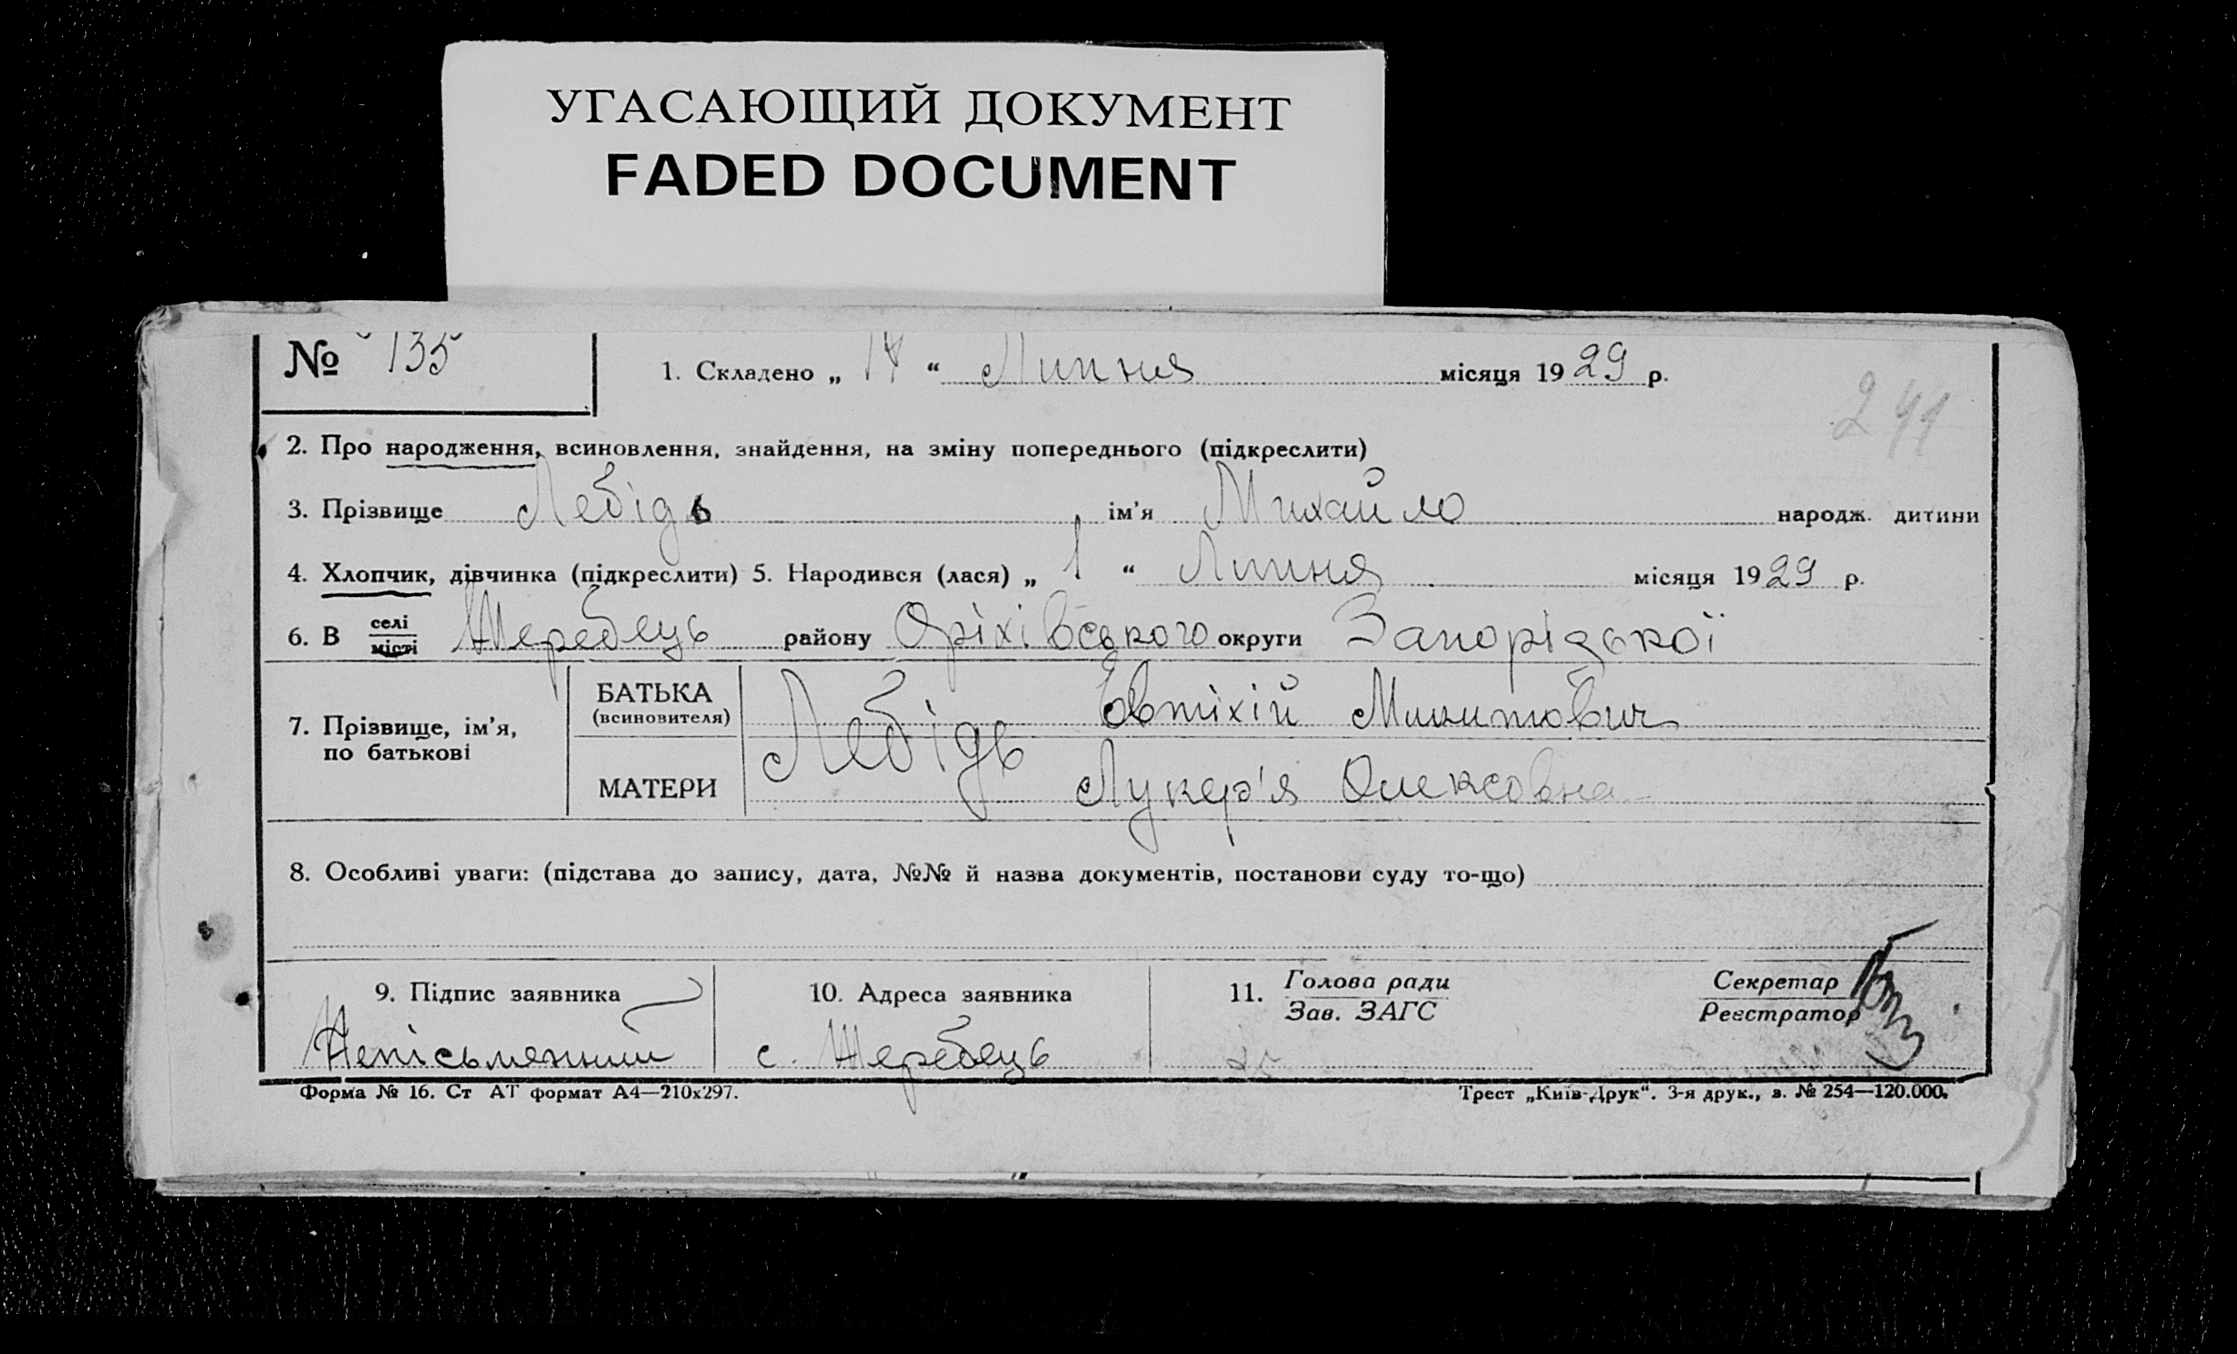 УГАСАЮЩИЙ ДОКУМЕНТ
FADED DOCUMENT
№ 135
1. Складено „ 14 “ Липня місяця 1929 р.
241
2. Про народження, всиновлення, знайдення, на зміну попереднього (підкреслити)
3. Прізвище Лебідь ім'я Михайло народж. дитини
4. Хлопчик, дівчинка (підкреслити) 5. Народився (лася) „ 1 “ Липня місяця 1929 р.
6. В селі місті Жеребець району Оріхівського округи Запорізької
7. Прізвище, ім'я, по батькові
БАТЬКА (всиновителя) Лебідь Евтіхій Микитович
МАТЕРИ Лукер'я Олексовна
8. Особливі уваги: (підстава до запису, дата, №№ й назва документів, постанови суду то-що)
9. Підпис заявника
Непісьменний
10. Адреса заявника
с. Жеребець
11. Голова ради
Зав. ЗАГС
Секретар
Реєстратор
Форма № 16. Ст АТ формат А4—210х297.
Трест „Київ-Друк“. 3-я друк., з. № 254—120.000.